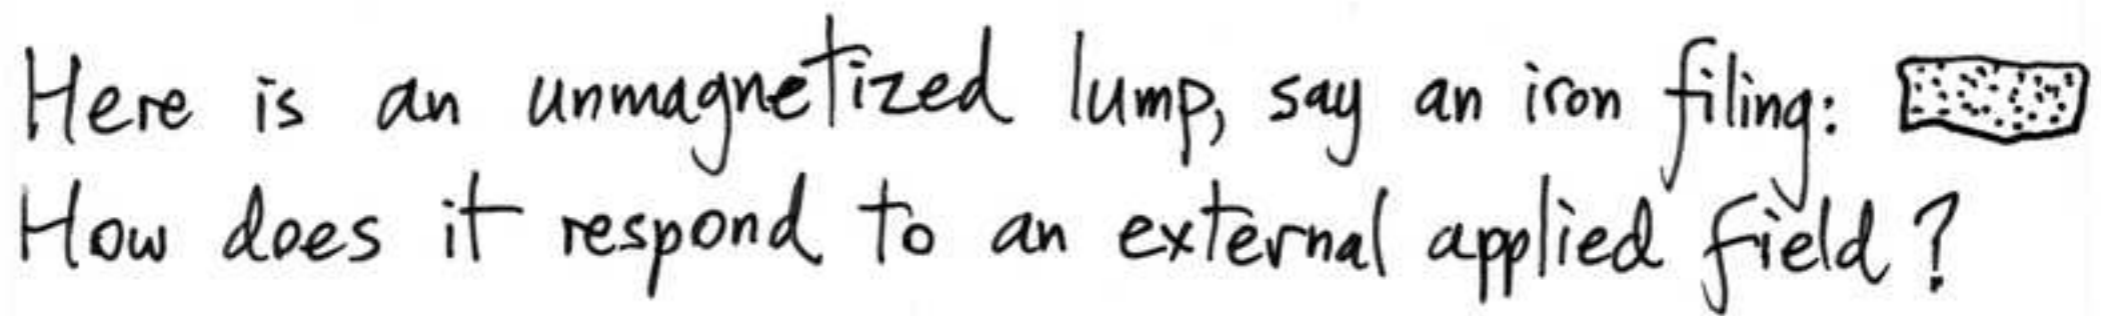 Here is an unmagnetized lump, say an iron filing:
How does it respond to an external applied field?